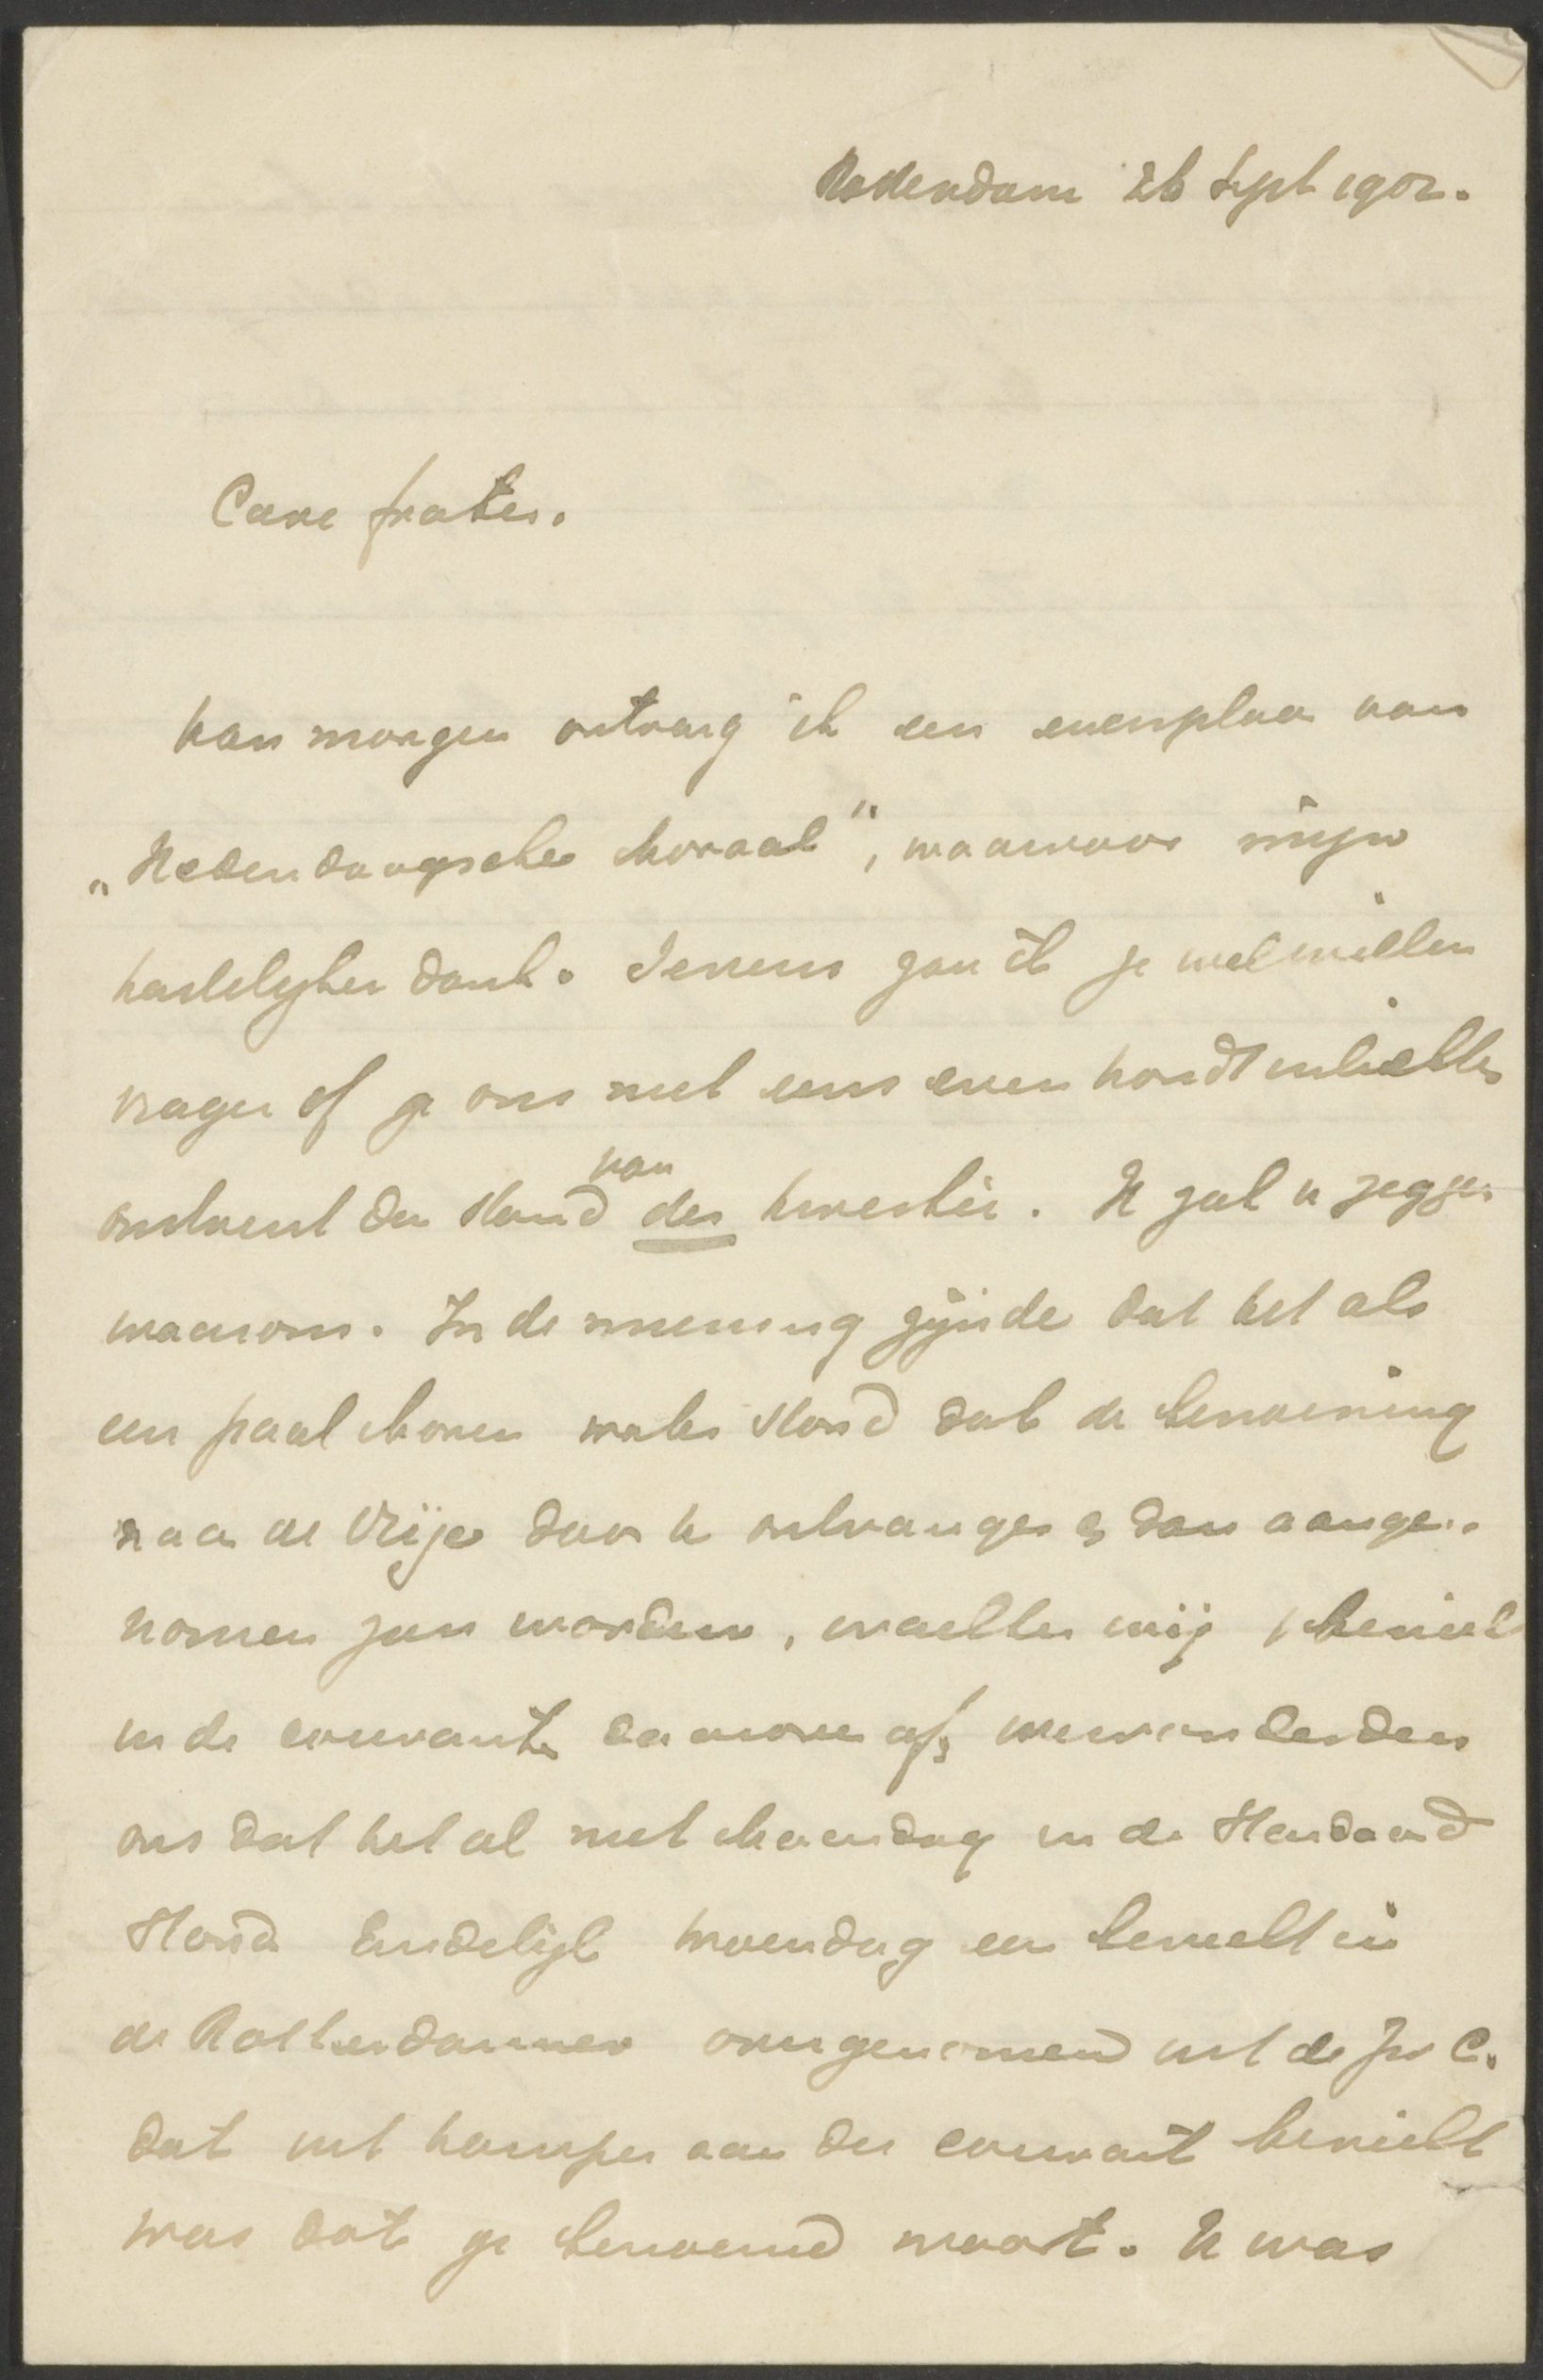 Rotterdam 26 Sept 1902.
Care frater.
Van morgen ontving ik een exemplaar van
„Hedendaagsche Moraal", waarvoor mijn
hartelijken dank. Tevens zou ik je wel willen
vragen of je ons niet eens even hondt inlichten
omtrent den stand van des kwestie. Ik zal u zeggen
waarom. In de meening zijnde dat het als
een paal boven water stond dat de benoeming
naar de Vrije door u ontvangen en dan aange-
nomen zou worden, wachtten wij het bericht
in de couranten daarvan af, verwonderden
ons dat het al niet Maandag in de Standaard
stond Eindelijk Woensdag een bericht in
de Rotterdammer overgenomen uit de Zw C.
dat uit Kampen aan die courant bericht
was dat ge benoemd waart. Ik was